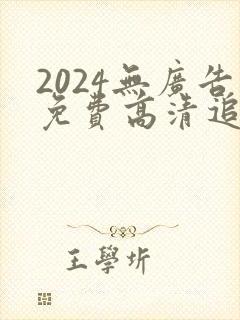 2024無廣告
免費高清追
王學圻